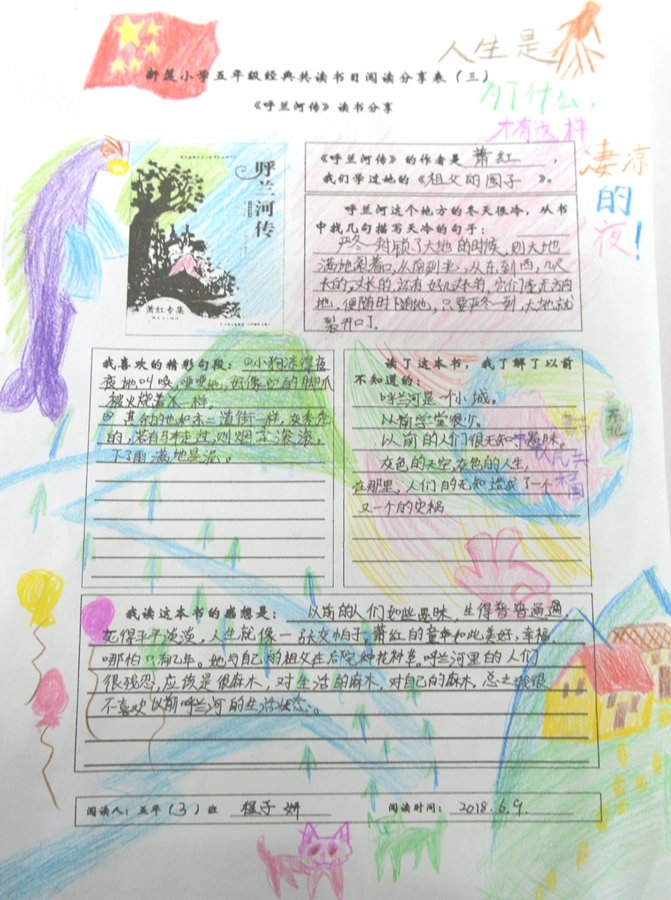 人生是
为了什么，
才有这样
凄凉
的
夜！
新莲小学五年级经典共读书目阅读分享表（三）
《呼兰河传》读书分享
呼兰河传
萧红专集
《呼兰河传》的作者是 萧红 ，
我们学过她的《祖父的园子 》。
呼兰河这个地方的冬天很冷，从书
中找几句描写天冷的句子：
严冬一封锁了大地的时候，则大地
满地裂着口，从南到北，从东到西，几尺
长的，丈长的，还有好几丈长的，它们毫无方向
地，便随时随地，只要严冬一到，大地就
裂开口了。
我喜欢的精彩句段：①小狗冻得夜
夜地叫唤，哽哽地，好像它的脚爪
被火烧着一样
② 其余的也和东二道街一样，灰秃秃
的，若有车马走过，则烟尘滚滚，
下了雨满地是泥。
读了这本书，我了解了以前
不知道的：
呼兰河是一个小城。
以前学堂很少。
以前的人们很无知，愚昧。
灰色的天空，灰色的人生，
在那里，人们的无知造成了一个
又一个的灾祸
我读这本书的感想是： 以前的人们如此愚昧，生得普普通通
死得平平淡淡，人生就像一张灰帕子，萧红的童年如此美好，幸福，
哪怕只有几年。她与自己的祖父在后院种花种草，呼兰河里的人们
很残忍，应该是很麻木，对生活的麻木，对自己的麻木。总之我很
不喜欢以前呼兰河的生活状态。
阅读人：五年（3）班 程子妍 阅读时间： 2018.6.9.